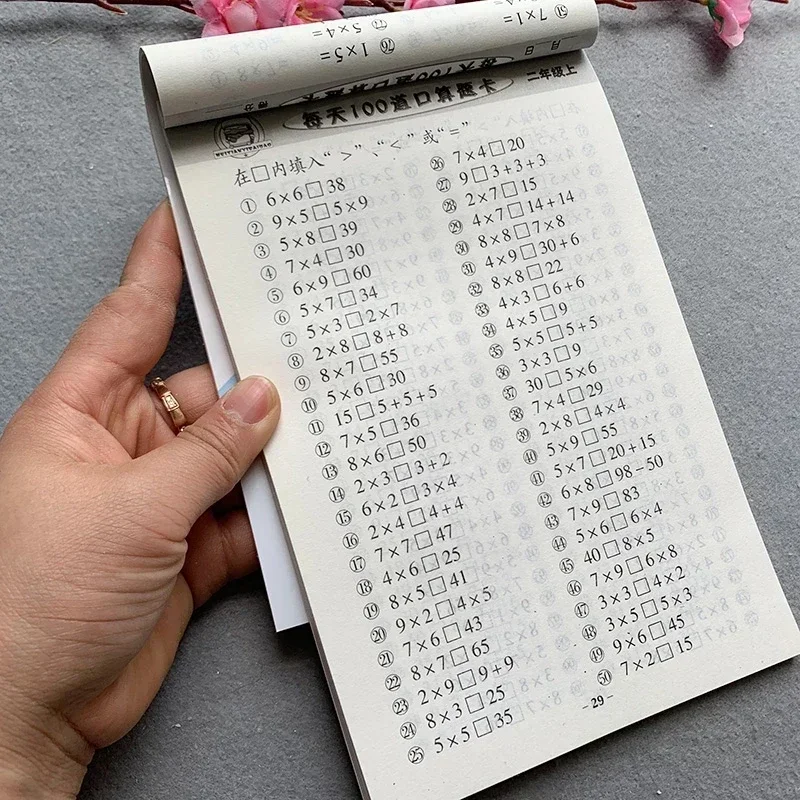 7×1=
5×4=
㊺ 1×5=
二年级上
每天100道口算题卡
MEITIANYIBAIDAO
在□内填入“＞”、“＜”或“=”
① 6×6□38
② 9×5□5×9
③ 5×8□39
④ 7×4□30
⑤ 6×9□60
⑥ 5×7□34
⑦ 5×3□2×7
⑧ 2×8□8+8
⑨ 8×7□55
⑩ 5×6□30
⑪ 15□5+5+5
⑫ 7×5□36
⑬ 8×6□50
⑭ 2×3□3+2
⑮ 6×2□3×4
⑯ 2×4□4+4
⑰ 7×7□47
⑱ 4×6□25
⑲ 8×5□41
⑳ 9×2□4×5
㉑ 7×6□43
㉒ 8×7□65
㉓ 2×9□9+9
㉔ 8×3□25
㉕ 5×5□35
㉖ 7×4□20
㉗ 9□3+3+3
㉘ 2×7□15
㉙ 4×7□14+14
㉚ 8×8□7×8
㉛ 4×9□30+6
㉜ 8×8□22
㉝ 4×3□6+6
㉞ 4×5□9
㉟ 5×5□5+5
㊱ 3×3□9
㊲ 30□5×6
㊳ 7×4□29
㊴ 2×8□4×4
㊵ 5×9□55
㊶ 5×7□20+15
㊷ 6×8□98-50
㊸ 7×9□83
㊹ 5×6□6×4
㊺ 40□8×5
㊻ 7×9□6×8
㊼ 3×3□4×2
㊽ 3×5□5×3
㊾ 9×6□45
㊿ 7×2□15
-29-